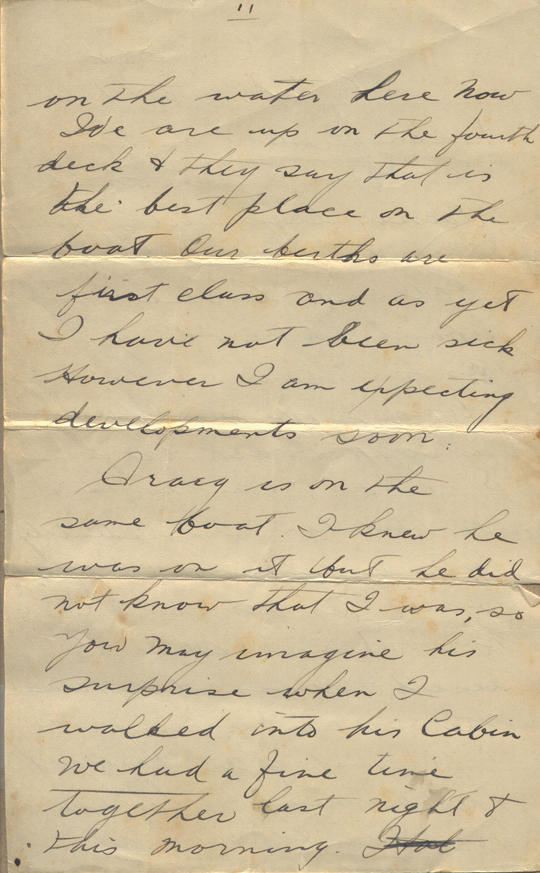 11
on the water here now
We are up on the fourth
deck & they say that is
the best place on the
boat. Our berths are
first class and as yet
I have not been sick
However I am expecting
developments soon.
Tracy is on the
same boat. I knew he
was on it but he did
not know that I was, so
you may imagine his
surprise when I
walked into his Cabin
We had a fine time
together last night &
this morning.